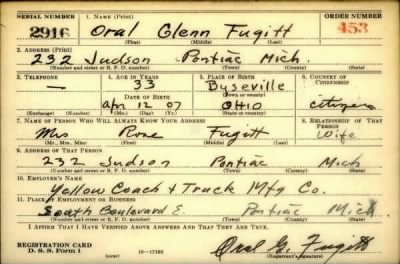 SERIAL NUMBER 1. NAME (Print) ORDER NUMBER
2916 Oral Glenn Fugitt 453
(First) (Middle) (Last)
2. ADDRESS (Print)
232 Judson Pontiac Mich.
(Number and street or R. F. D. number) (Town) (County) (State)
3. TELEPHONE 4. AGE IN YEARS 5. PLACE OF BIRTH 6. COUNTRY OF CITIZENSHIP
— 33 Byseville
DATE OF BIRTH (Town or county)
Apr 12 07 OHIO citizen
(Mo.) (Day) (Yr.) (State or country)
7. NAME OF PERSON WHO WILL ALWAYS KNOW YOUR ADDRESS 8. RELATIONSHIP OF THAT PERSON
Mrs Rose Fugitt Wife
(Mr., Mrs., Miss) (First) (Middle) (Last)
9. ADDRESS OF THAT PERSON
232 Judson Pontiac Mich
(Number and street or R. F. D. number) (Town) (County) (State)
10. EMPLOYER'S NAME
Yellow Coach & Truck Mfg Co.
11. PLACE OF EMPLOYMENT OR BUSINESS
South Boulevard E. Pontiac Mich
(Number and street or R. F. D. number) (Town) (County) (State)
I AFFIRM THAT I HAVE VERIFIED ABOVE ANSWERS AND THAT THEY ARE TRUE.
REGISTRATION CARD
D. S. S. Form 1 (over) 16—17105 Oral G. Fugitt
(Registrant's signature)